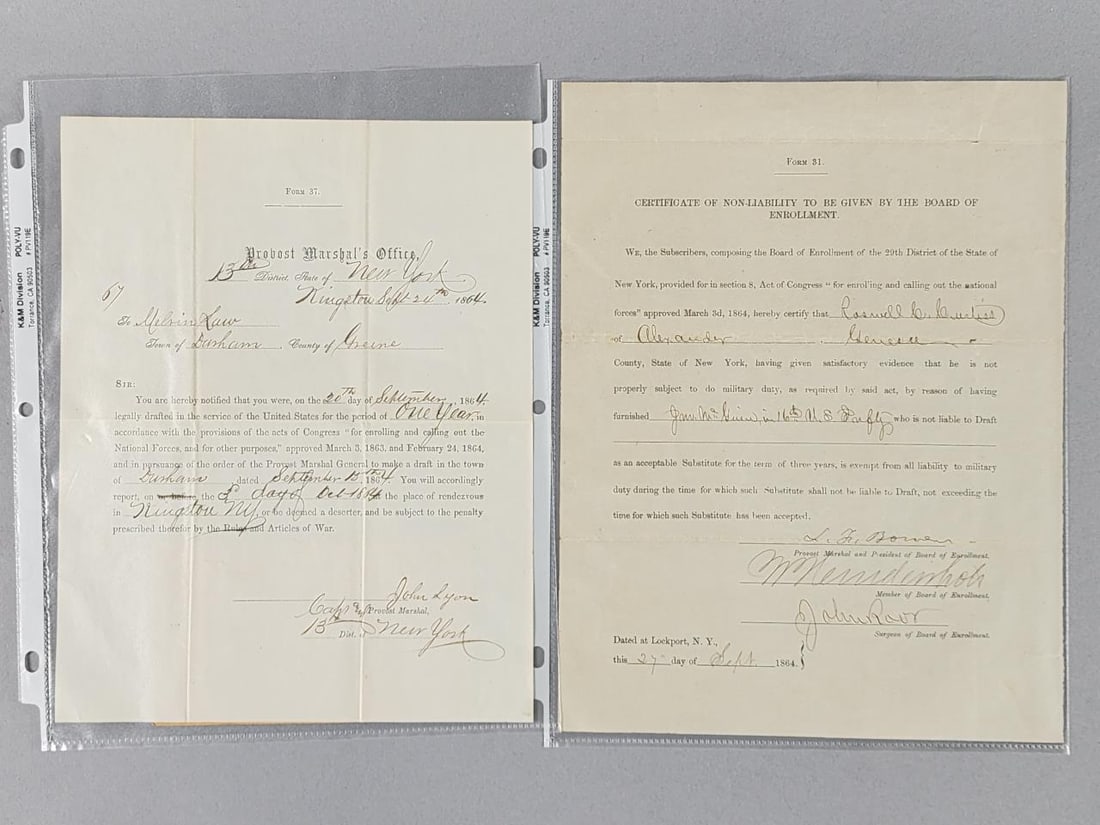 K&M Division POLY-VU
Torrance, CA 90503 # PV119E
Form 37.
Provost Marshal's Office,
13th District, State of New York
Kingston Sept 24th, 1864.
67
To Melvin Law
Town of Durham, County of Greene
Sir:
You are hereby notified that you were, on the 20th day of September, 1864,
legally drafted in the service of the United States for the period of One Year, in
accordance with the provisions of the acts of Congress "for enrolling and calling out the
National Forces, and for other purposes," approved March 3, 1863, and February 24, 1864,
and in pursuance of the order of the Provost Marshal General to make a draft in the town
of Durham dated September 15th 1864. You will accordingly
report, on or before, the day of Oct 1864 the place of rendezvous
in Kingston NY, or be deemed a deserter, and be subject to the penalty
prescribed therefor by the Rules and Articles of War.
John Lyon
Capt & Provost Marshal,
13th Dist. of New York
K&M Division POLY-VU
Torrance, CA 90503 # PV119E
Form 31.
CERTIFICATE OF NON-LIABILITY TO BE GIVEN BY THE BOARD OF
ENROLLMENT.
We, the Subscribers, composing the Board of Enrollment of the 29th District of the State of
New York, provided for in section 8, Act of Congress "for enrolling and calling out the national
forces" approved March 3d, 1864, hereby certify that Roswell C. Curtiss
of Alexander Genesee
County, State of New York, having given satisfactory evidence that he is not
properly subject to do military duty, as required by said act, by reason of having
furnished in 16th U.S. Infty who is not liable to Draft
as an acceptable Substitute for the term of three years, is exempt from all liability to military
duty during the time for which such Substitute shall not be liable to Draft, not exceeding the
time for which such Substitute has been accepted.
L. F. Bowen
Provost Marshal and President of Board of Enrollment.
Member of Board of Enrollment.
John
Surgeon of Board of Enrollment.
Dated at Lockport, N. Y.,
this 27 day of Sept. 1864.